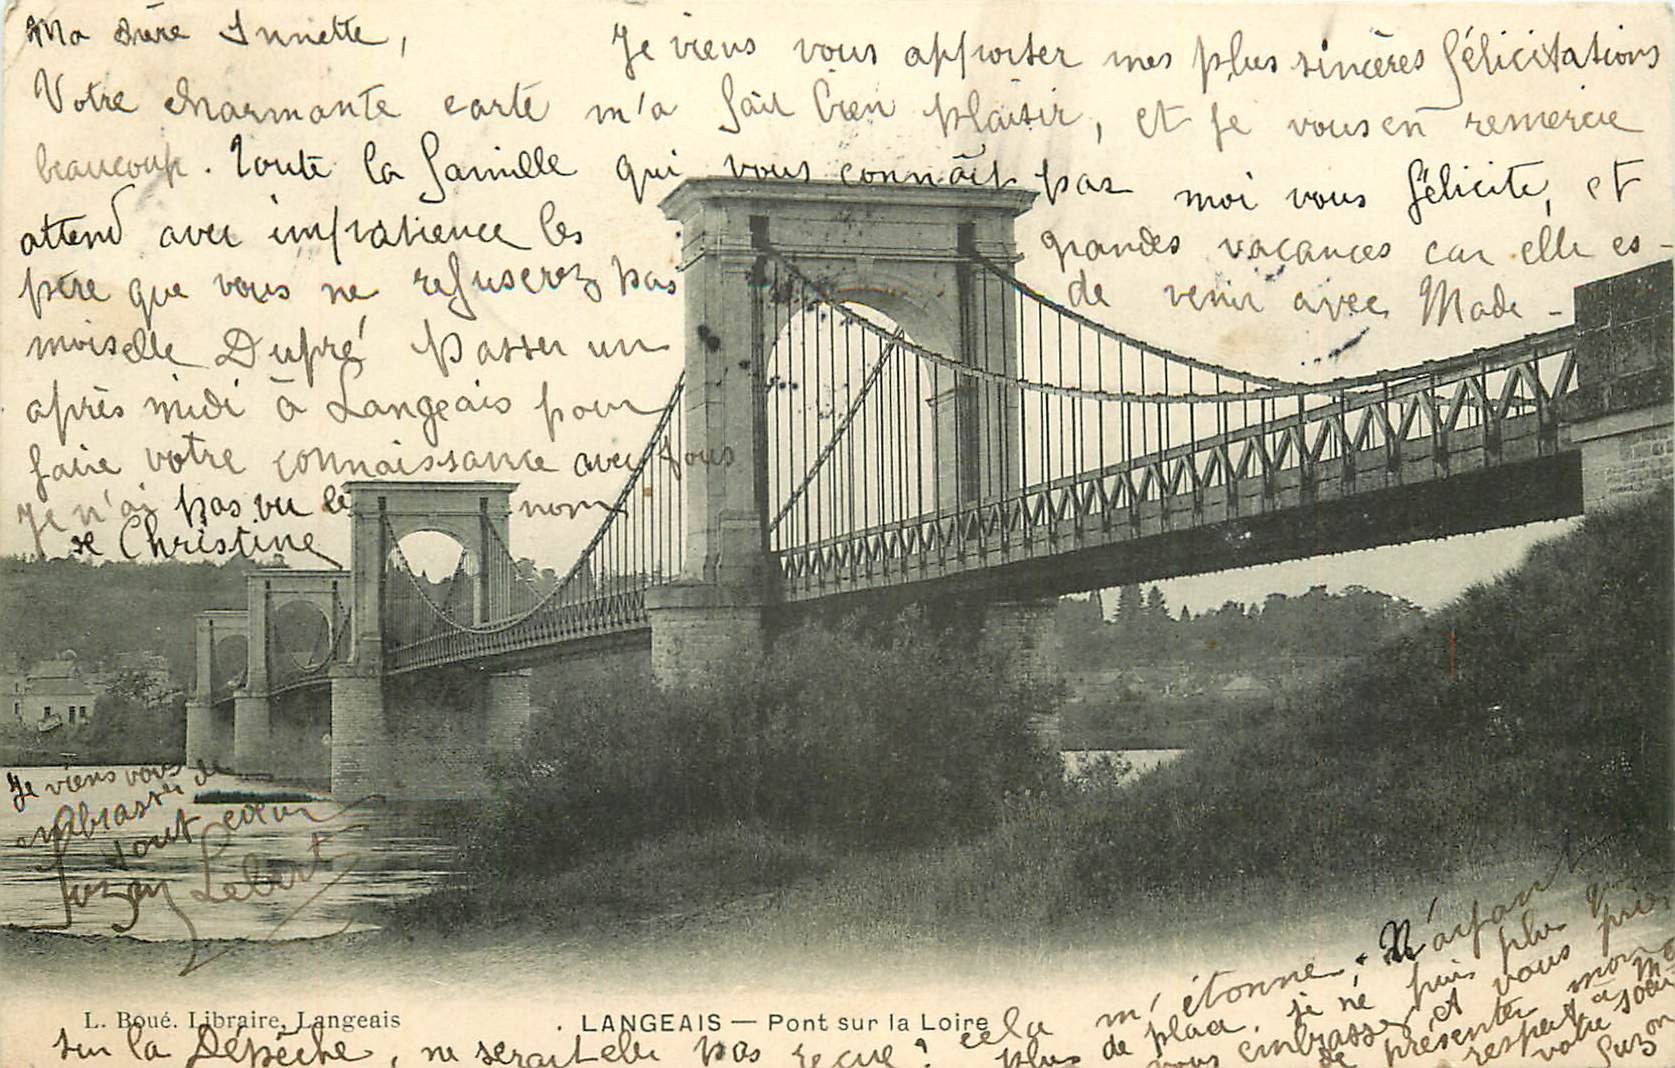 Ma chère Annette,
Je viens vous apporter mes plus sincères félicitations
Votre charmante carte m'a fait bien plaisir, et je vous en remercie
beaucoup. Toute la famille qui vous connaît par moi vous félicite, et
attend avec impatience les grandes vacances car elle es-
père que vous ne refuserez pas de venir avec Made-
moiselle Dupré passer un
après midi à Langeais pour
faire votre connaissance avec tous
Je n'ai pas vu le nom
de Christine
sur la Dépêche, ne serait elle pas reçue? cela m'étonne. N'ayant
plus de place, je ne puis plus que
vous embrasser et vous prier
de présenter mon
respect à
votre
Suzon
Je viens vous de
embrasser
tout cœur
Suzon Lebert
L. Boué. Libraire, Langeais
LANGEAIS — Pont sur la Loire